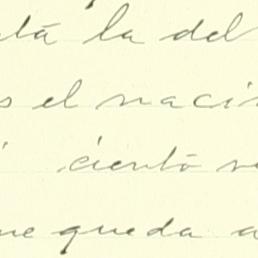 tá la del
s el naci
ciento
ue queda a